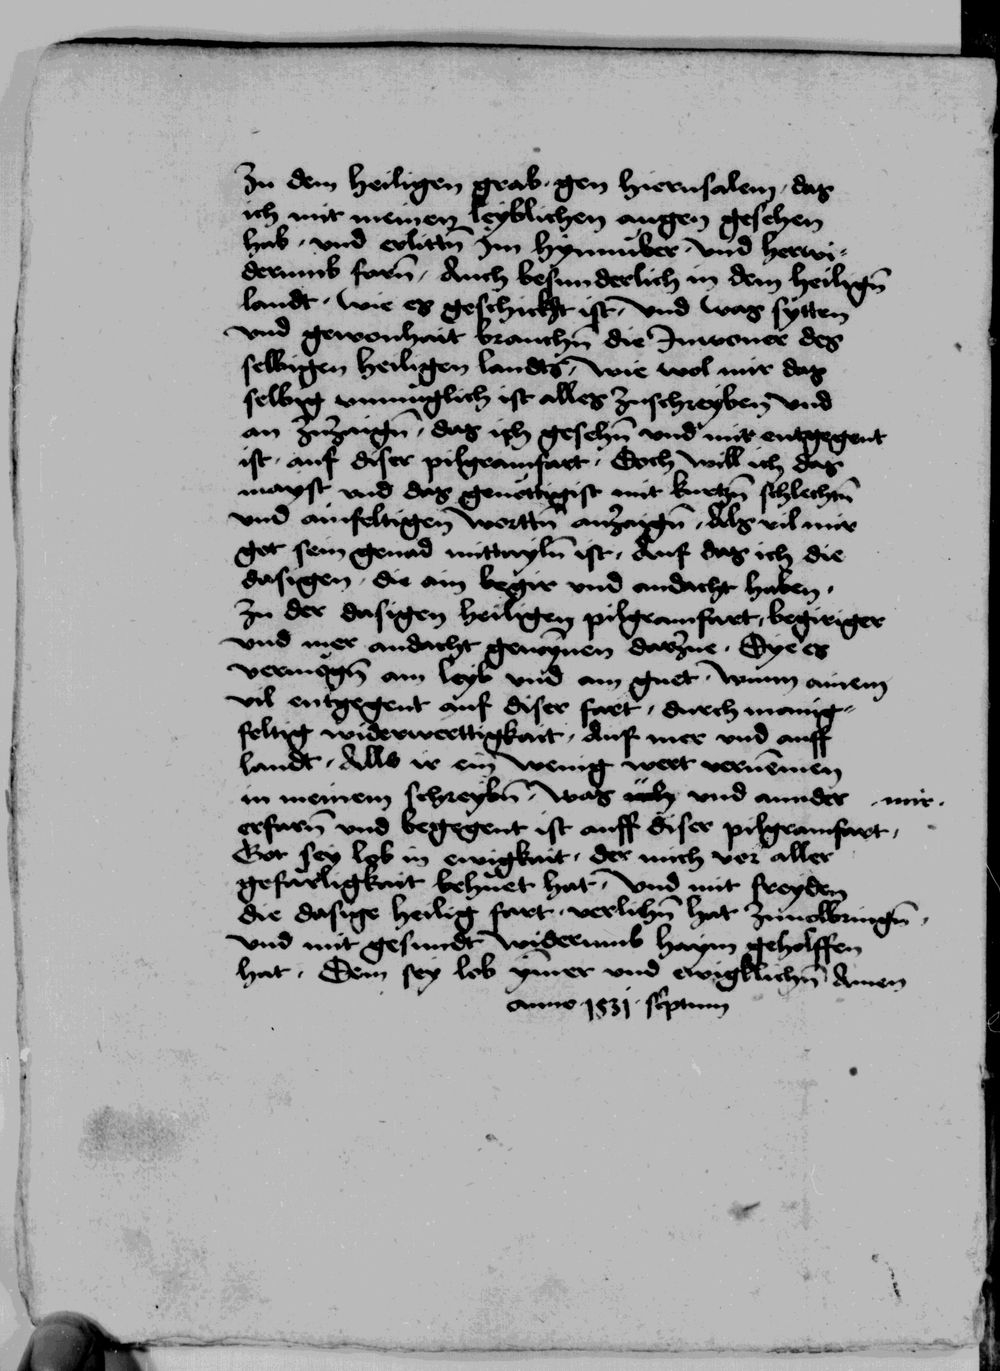 Zu dem heiligen grab · gen Hierusalem · das
ich mit meinen leyblichen augen gesehen
hab · und erlittn̄ Im hynnuber · und herwi-
derumb farn̄ · Auch besunderlich in dem heilign̄
landt · wie es geschickt ist · und was sytten
und gewonhait brauchn̄ die Inwoner des
selbigen heiligen landts · wie wol mir das
selbig unmuglich ist alles zuschreyben und
an zuzaign̄ · das ich gesehn̄ und mir entgegent
ist · auf diser pilgramfart · Doch will ich das
mayst und das genottigist mit kurtzn̄ schlechtn̄
und ainfeltigen worttn̄ anzaign̄ · Als vil mir
got sein genad mittayln̄ ist · Auf das ich die
dasigen · die ain begir und andacht haben ·
Zu der dasigen heiligen pilgramfart · begiriger
und mer andacht gewynen darzue · Dye es
vermögn̄ am leyb und am guet · wann ainem
vil entgegent auf diser fart · durch manig-
feltig widerwerttigkait · Auf mer und auff
landt · Alls ir ein wenig wert vernemen
in meinem schreybn̄ · was ich und annder · mir ·
erfarn̄ und begegent ist auff diser pilgramfart ·
Got sey lob in ewigkait · der mich vor aller
gefarligkait behuet hat · und mit freyden
die dasige heilig fart · verlihn̄ hat zuuolbringn̄ ·
und mit gesundt widerumb haym geholffen
hat · Dem sey lob ym̄er und ewigklichn̄ Amen
anno · 1531 · scriptum